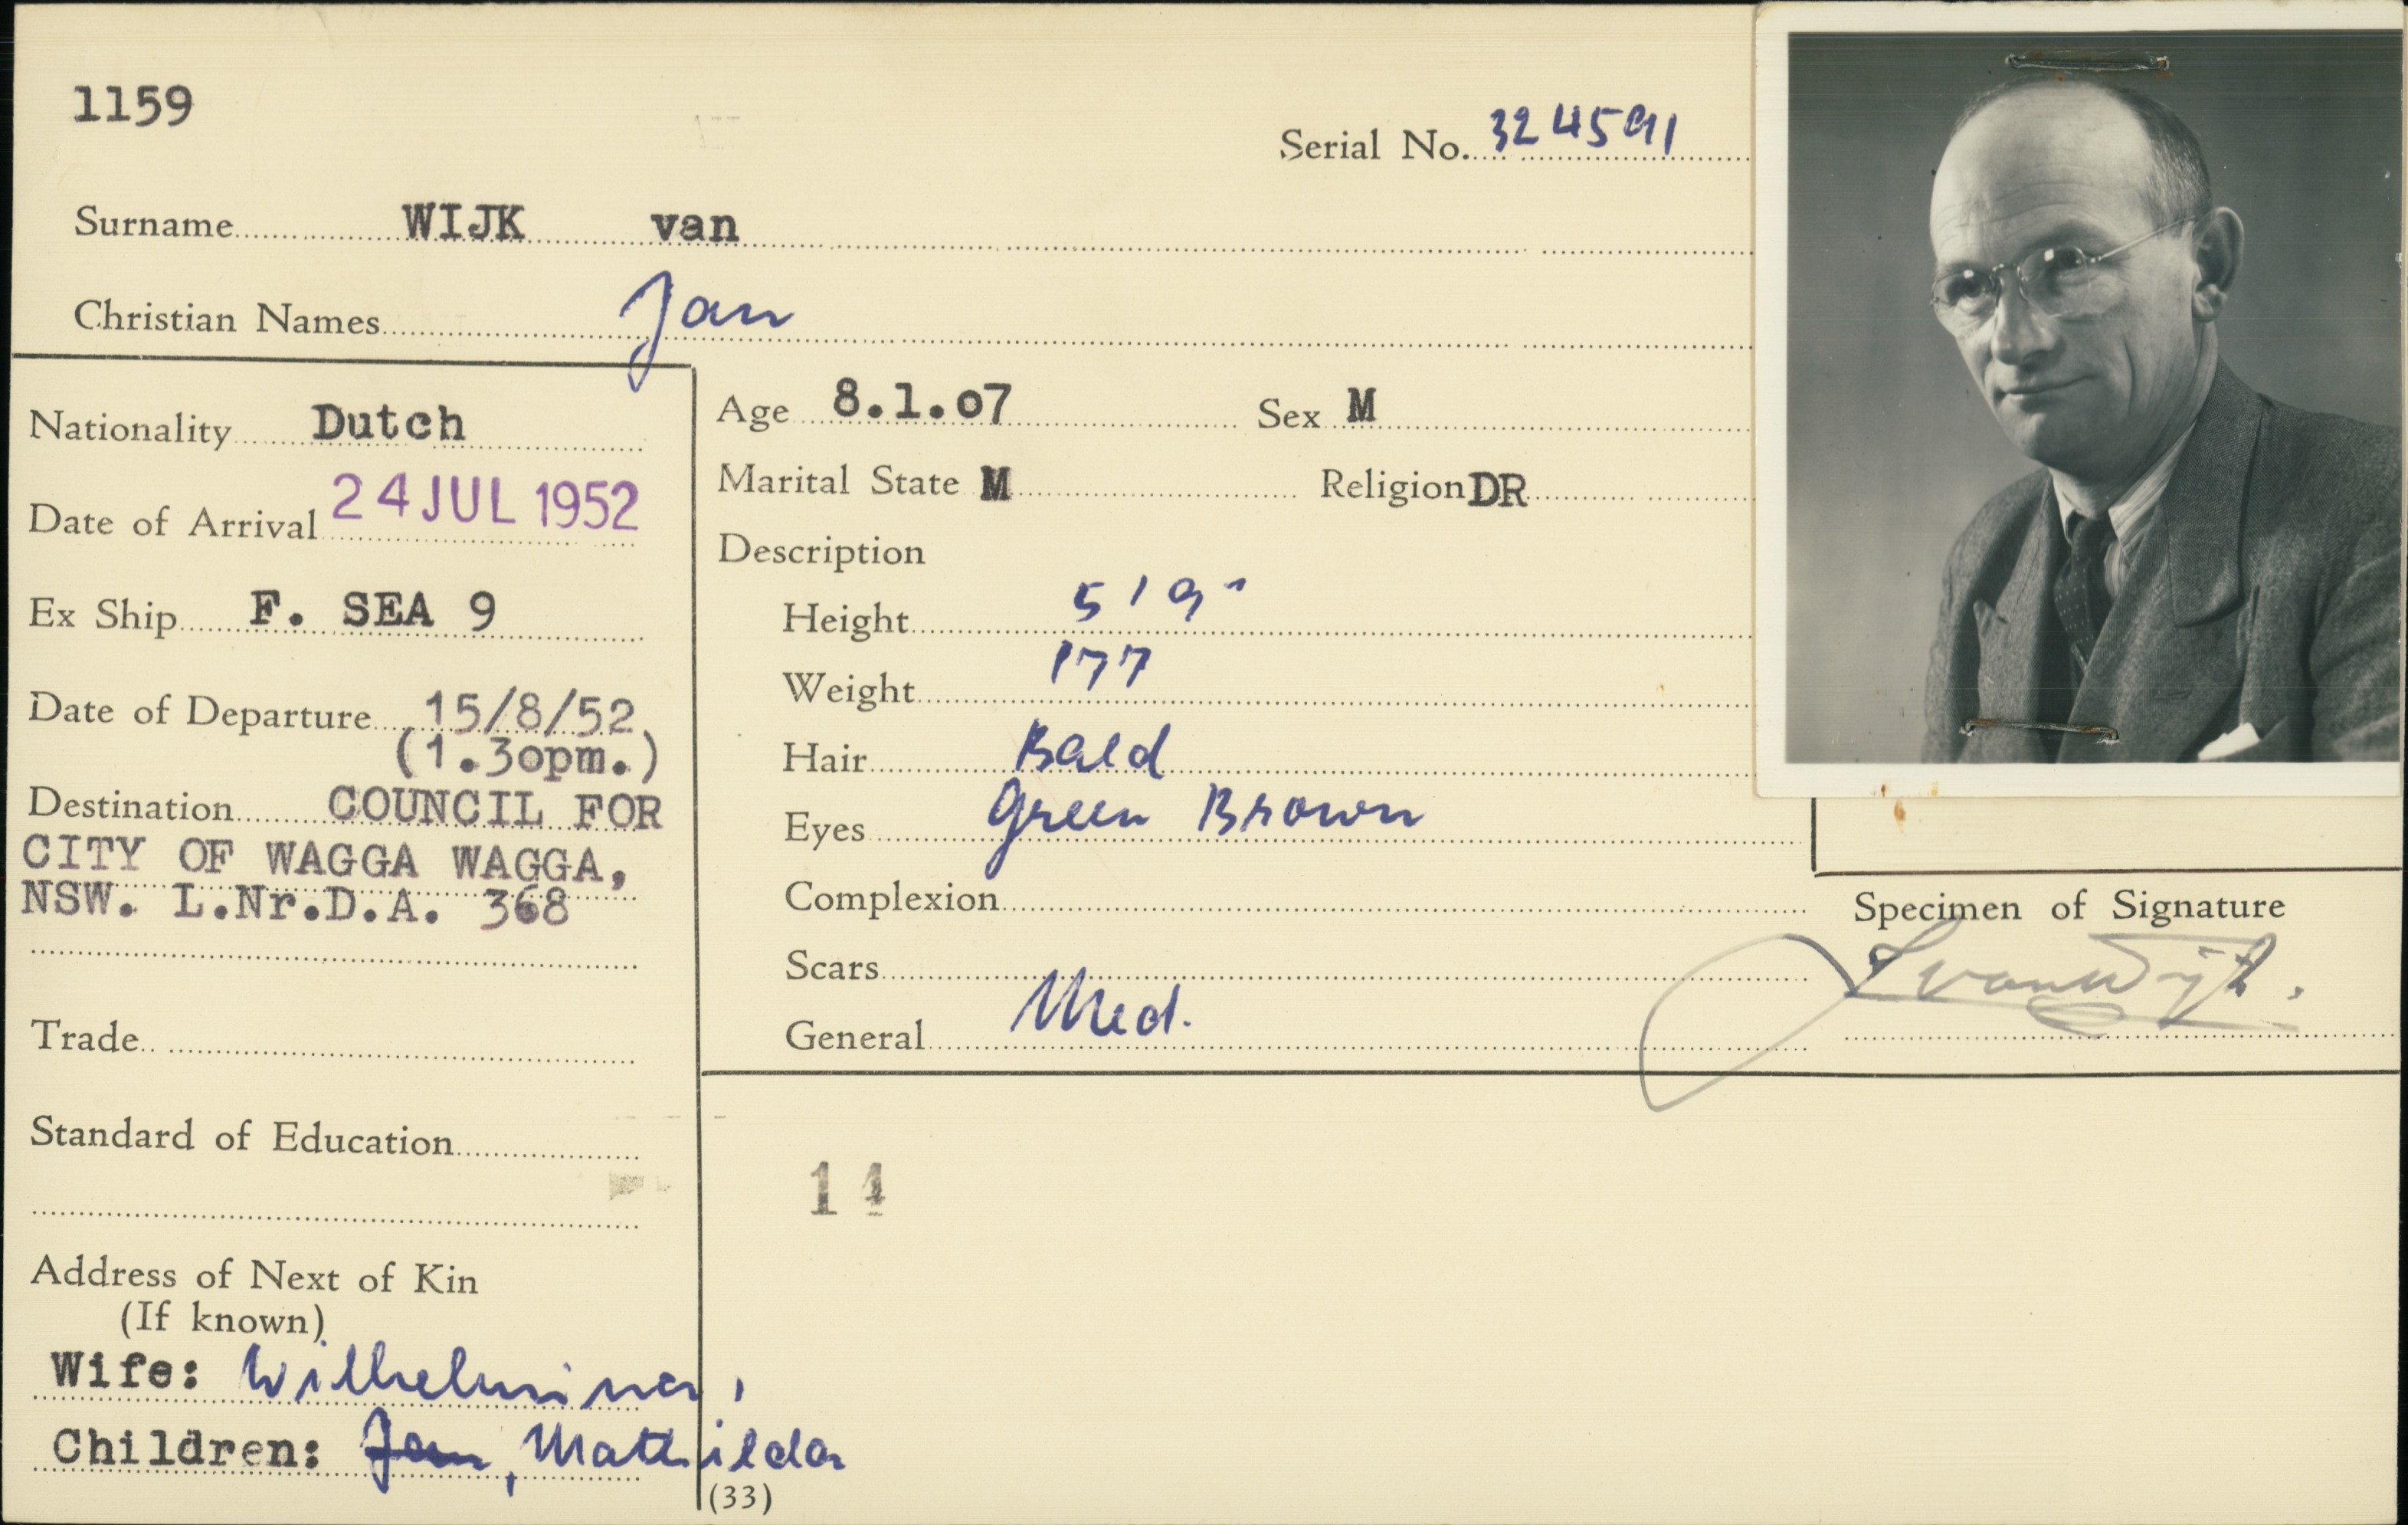 1159
Serial No. 324591
Surname WIJK van
Christian Names Jan
Nationality Dutch
Date of Arrival 24 JUL 1952
Ex Ship F. SEA 9
Date of Departure 15/8/52
(1.3opm.)
Destination COUNCIL FOR
CITY OF WAGGA WAGGA,
NSW. L.Nr.D.A. 368
Trade
Standard of Education
Address of Next of Kin
(If known)
Wife: Wilhelmina,
Children: Jan, Mathilda
(33)
Age 8.1.07 Sex M
Marital State M Religion DR
Description
Height 5'9"
Weight 177
Hair Bald
Eyes Green Brown
Complexion
Scars
General Med.
14
Specimen of Signature
J van Wijk.